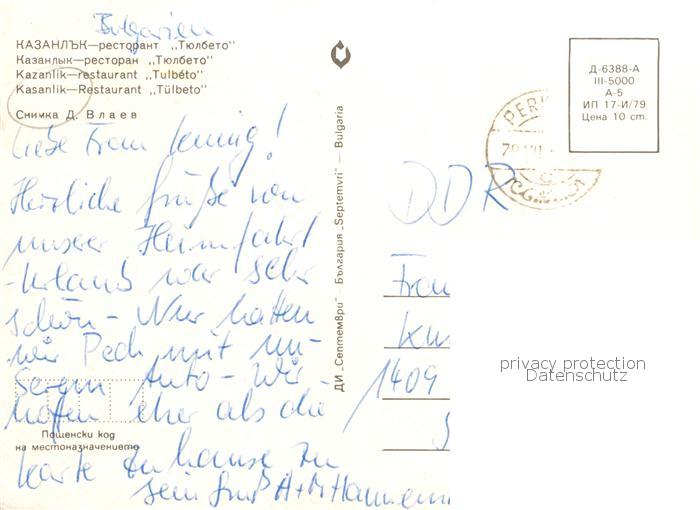 Bulgarien
КАЗАНЛЪК—ресторант „Тюлбето"
Казанлык—ресторан „Тюлбето"
Kazanlik—restaurant „Tulbéto"
Kasanlik—Restaurant „Tülbeto"
Снимка Д. Влаев
Liebe Frau
Herzliche Grüße von
unserer Heimfahrt
-Urlaub war sehr
schön - Nur hatten
wir Pech mit un-
serem Auto - Wir
hoffen eher als die
Пощенски код
на местоназначението
Karte zu hause zu
sein Gruß
ДИ „Септември" България „Septemvri" — Bulgaria
Д-6388-А
III-5000
А-5
ИП 17-И/79
Цена 10 ст.
DDR
Frau
1409
privacy protection
Datenschutz